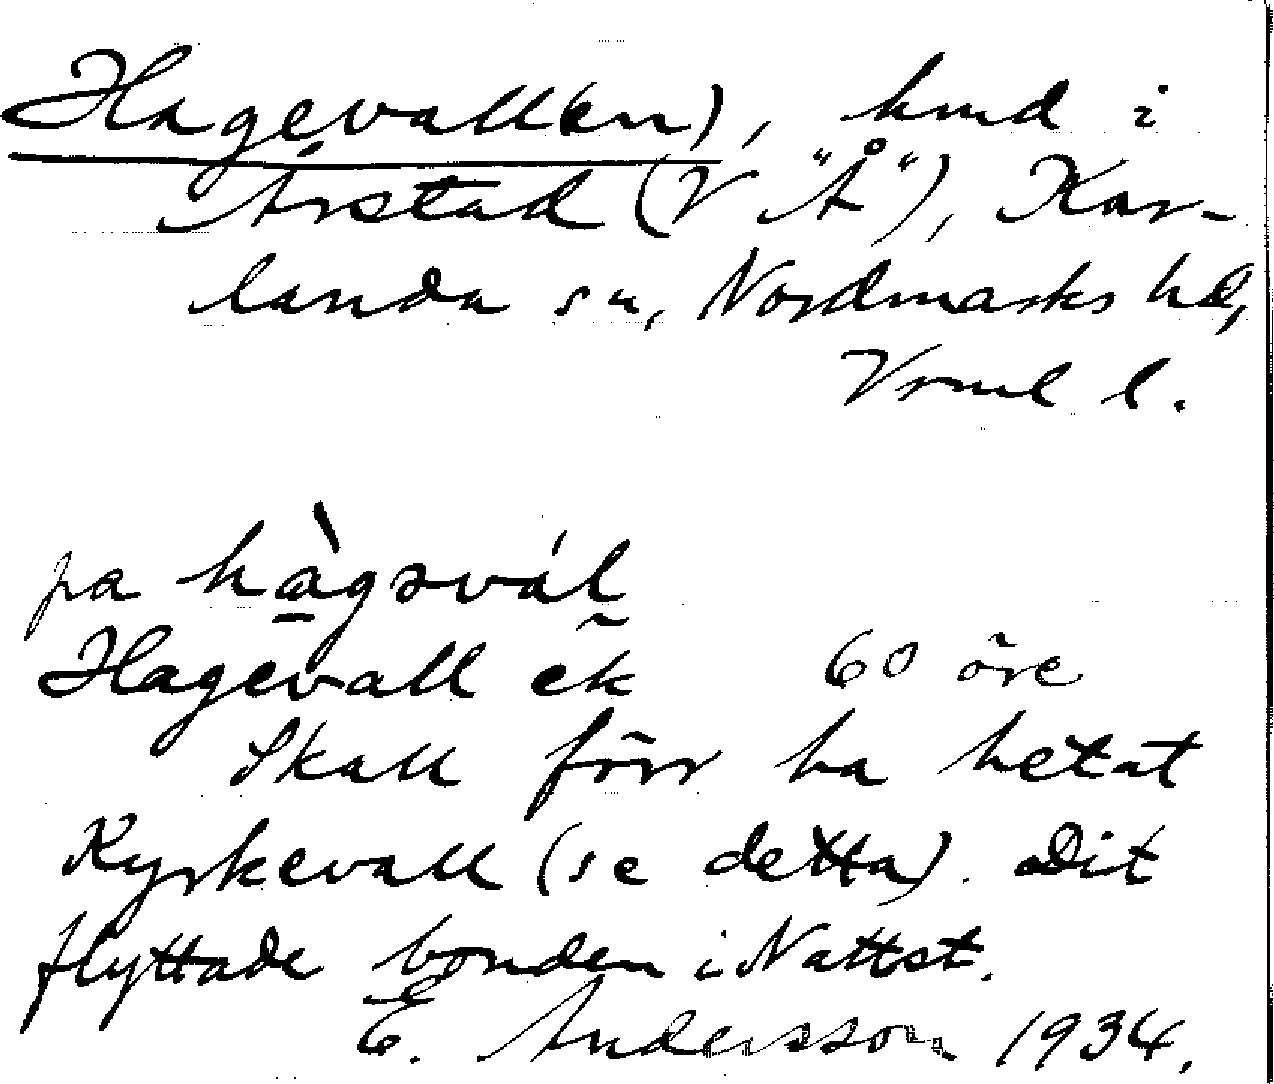 Hagevall(en), hmd i
Årstad (V "Å"), Kar-
landa sn, Nordmarks hd,
Vrml l.
pa hàgəvál
Hagevall ek 60 öre
Skall förr ha hetat
Kyrkevall (se detta). Dit
flyttade bonden i Nattst.
E. Andersson 1934.